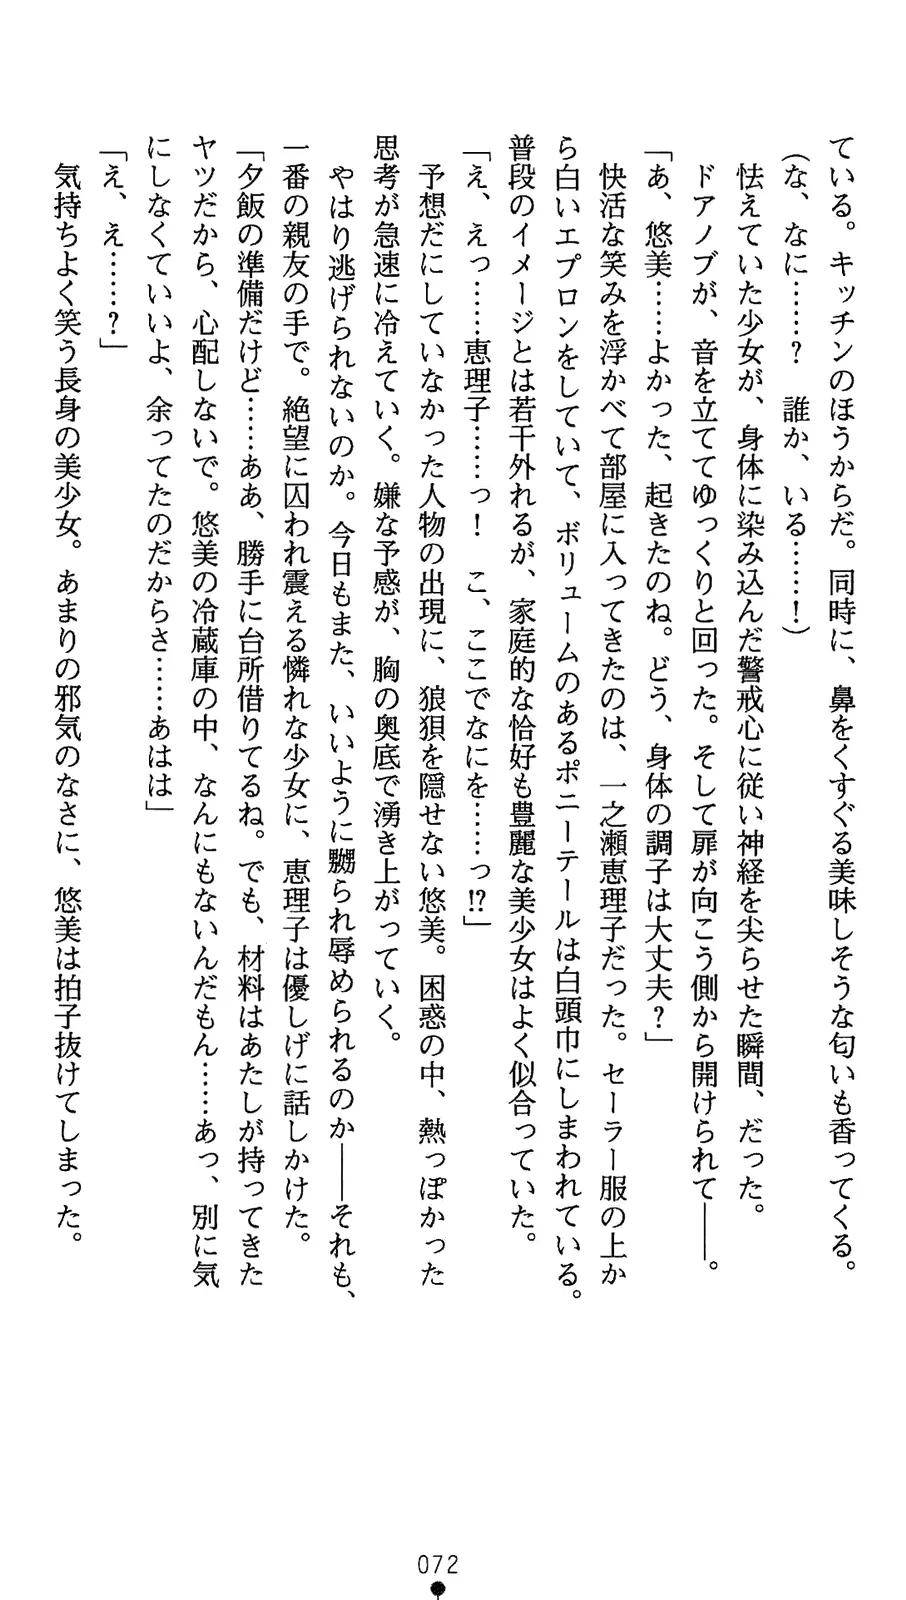 ている。キッチンのほうからだ。同時に、鼻をくすぐる美味しそうな匂いも香ってくる。
(な、なに……? 誰か、いる……!)
怯えていた少女が、身体に染み込んだ警戒心に従い神経を尖らせた瞬間、だった。
ドアノブが、音を立ててゆっくりと回った。そして扉が向こう側から開けられて――。
「あ、悠美……よかった、起きたのね。どう、身体の調子は大丈夫?」
快活な笑みを浮かべて部屋に入ってきたのは、一之瀬恵理子だった。セーラー服の上か
ら白いエプロンをしていて、ボリュームのあるポニーテールは白頭巾にしまわれている。
普段のイメージとは若干外れるが、家庭的な恰好も豊麗な美少女はよく似合っていた。
「え、えっ……恵理子……っ! こ、ここでなにを……っ!?」
予想だにしていなかった人物の出現に、狼狽を隠せない悠美。困惑の中、熱っぽかった
思考が急速に冷えていく。嫌な予感が、胸の奥底で湧き上がっていく。
やはり逃げられないのか。今日もまた、いいように嬲られ辱められるのか――それも、
一番の親友の手で。絶望に囚われ震える憐れな少女に、恵理子は優しげに話しかけた。
「夕飯の準備だけど……ああ、勝手に台所借りてるね。でも、材料はあたしが持ってきた
ヤツだから、心配しないで。悠美の冷蔵庫の中、なんにもないんだもん……あっ、別に気
にしなくていいよ、余ってたのだからさ……あはは」
「え、え……?」
気持ちよく笑う長身の美少女。あまりの邪気のなさに、悠美は拍子抜けてしまった。
072